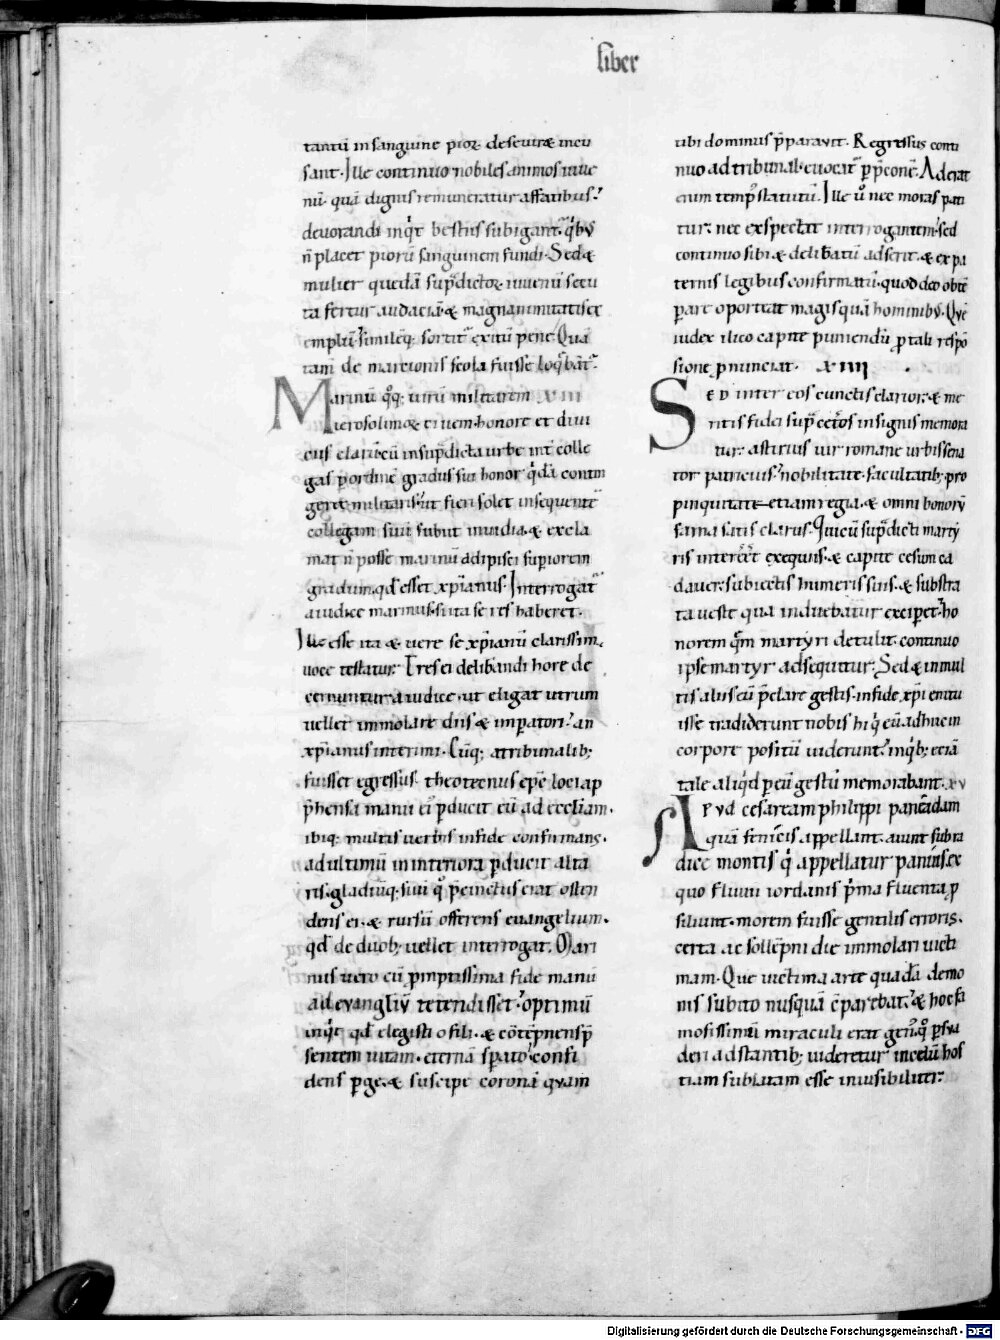 liber
tantū in sanguine pioꝝ deseuirae meu
sant· Ille continuo nobiles animos iuue
nū· quā dignis remuneratur affatibus?
deuorandi inqͥt bestiis subigantᷣ· qͥbꝰ
n̄ placet pioꝝ sanguinem fundi· Sed &
mulier quedā sup̄dictoꝝ iuuenū secu
ta fertur audaciā· & magnanimitatis et
emplū· similēq; sortitᷣ exitū pene· Quā
tam̄ de marcionis scola fuisse loqͣbatᷣ·
Marinū qͦq; uirū militarem XIII
ierosolimoꝝ ciuem· honore et diui
ciis clarū· cū in sup̄dicta urbe int̄ colle
gas ꝑ ordinē gradus sui honor qͥdā contin
geret militaris· ut fieri solet insequentē
collegam suū subiit inuidia· & excla
mat n̄ posse marinū adipisci superiorem
gradum· qd̄ esset xp̄ianus· Interrogatᷣ
a iudice marinus· si ita se res haberet·
Ille esse ita & uere se xp̄ianū clarissima
uoce testatur· Tres ei delib̄andi hore de
cernuntur a iudice· ut eligat utrum
uellet immolare diis & imperatori? an
xp̄ianus interimi· Cūq; a tribunalib;
fuisset egressus· theotecnus ep̄c loci ap
p̄hensa manu ei ꝓducit eū ad eccl̄iam·
ibiq; multis uerbis in fide confirmans·
ad ultimū in interiora ꝓducit alta
ris· gladiūq; suū qͦ p̄cinctus erat osten
dens ei· & rursū offerens euangelium·
qd̄ de duob; uellet interrogat· Mari
nus uero cū ꝓmptissima fide manū
ad evangliū tetendisset· optimū
inqͥt qd̄ elegisti o fili· & cōtēpnens p̄
sentem uitam· eternā sperato· confi
dens ꝑge· & suscipe coronā quam
tibi dominus p̄parauit· Regressus conti
nuo ad tribunal· euocatᷣ ꝑ p̄conē· Aderat
enim temp̄ statutū· Ille ū nec moras pati
tur· nec exspectat interrogantem· sed
continuo sibi & delib̄atū adserit· & ex pa
ternis legibus confirmatū· quod deo obtē
perare oporteat magis quā hominibꝰ· Que
iudex ilico capite puniendū ꝓ tali respō
sione ꝓnunciat· XIIII
Sed inter eos cunctis clarior· & me
ritis fidei sup̄ cet̄os insignis memora
tur· astirius uir romane urbis sena
tor patricius· nobilitate· facultatib; pro
pinquitate etiam regia· & omni bonorꝝ
fama satis clarus· Qui cū sup̄dicti marty
ris interēēt exequiis· & capite cesum ca
dauer· subiectis humeris suis· & substra
ta ueste qua induebatur exciperet· ho
norem qͣm martyri detulit· continuo
ipse martyr adsequitur· Sed & in mul
tis aliis eū p̄clare gestis· in fide xp̄i enitu
isse tradiderunt nobis hi qͥ eū adhuc in
corpore positū uiderunt· inqͥb; eciā
tale aliqͥd ꝑ eū gestū memorabant· XV
Apud cesaream philippi paneadam
quā fenices appellant· aiunt sub ra
dice montis qͥ appellatur panius· ex
quo fluuii iordanis p̄ma fluenta ꝓ
siliunt· morem fuisse gentilis erroris·
certa ac sollēpni die immolari uicti
mam· Que uictima arte quadā demo
nis subito nusquā cōparebat· & hoc fa
mosissimū miraculi erat gen̄· qͦ ꝑsua
deri adstantib; uideretur in celū hos
tiam sublatam esse inuisibiliter·
Digitalisierung gefördert durch die Deutsche Forschungsgemeinschaft - DFG